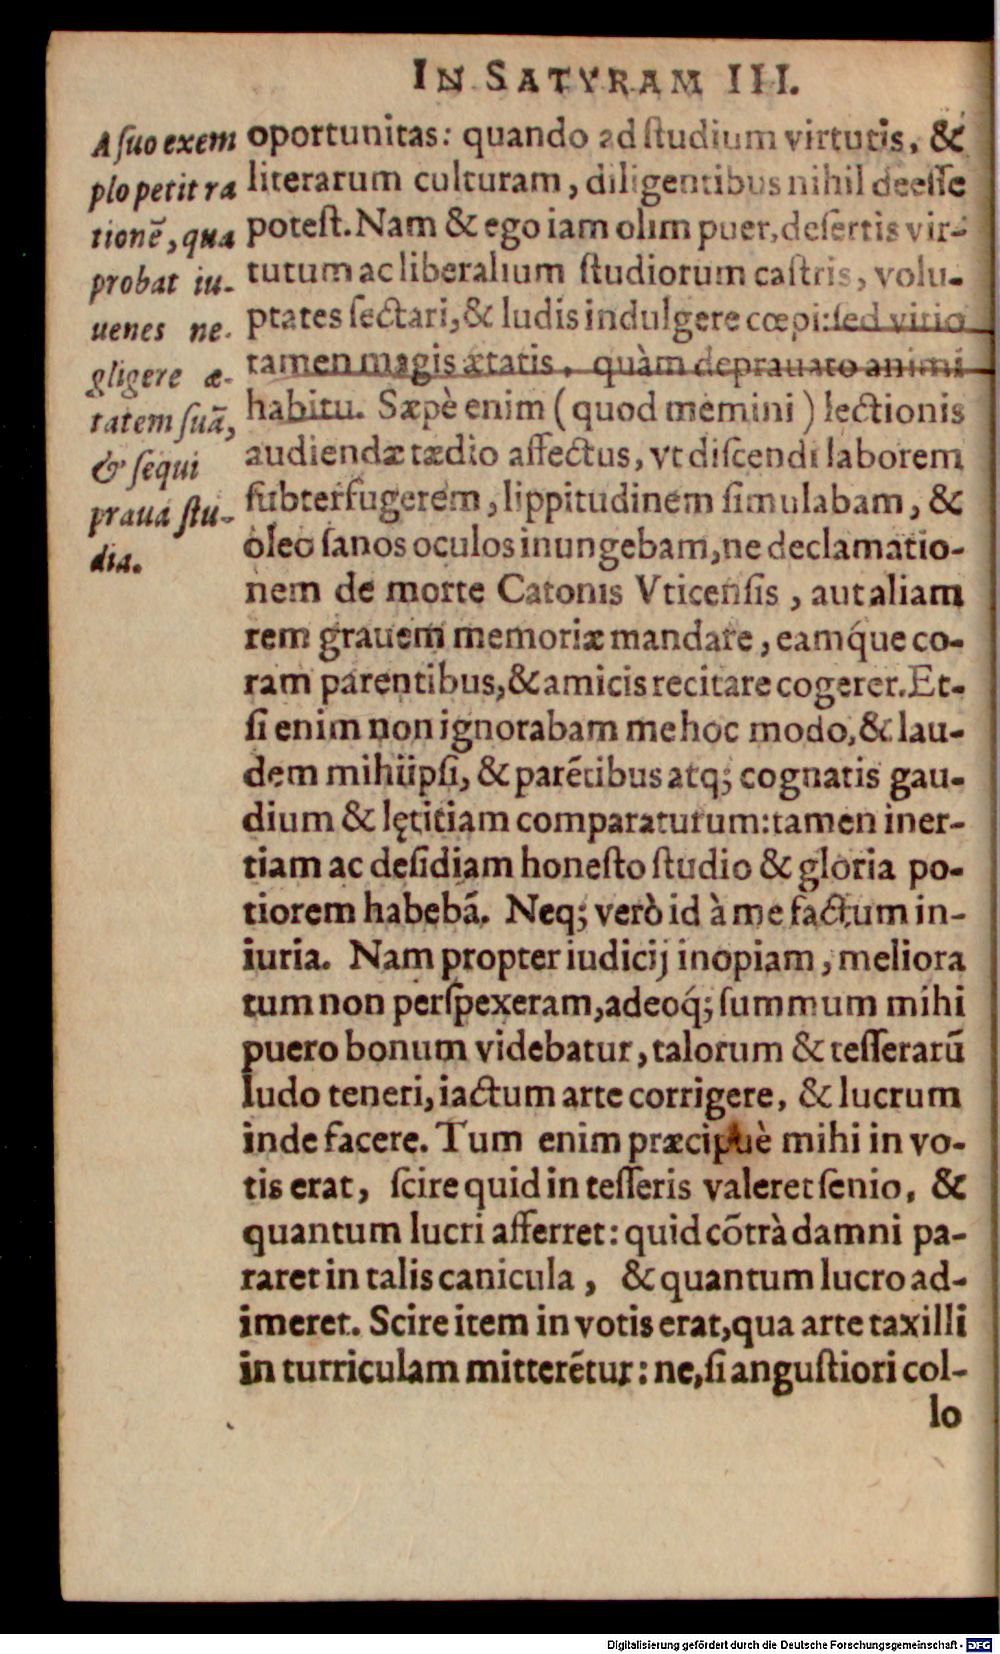 IN SATYRAM III.
A ſuo exem
plo petit ra
tionē, qua
probat iu-
uenes ne-
gligere æ-
tatem ſuā,
& ſequi
praua ſtu-
dia.
oportunitas: quando ad ſtudium virtutis, &
literarum culturam, diligentibus nihil deeſſe
poteſt. Nam & ego iam olim puer, deſertis vir-
tutum ac liberalium ſtudiorum caſtris, volu-
ptates ſectari, & ludis indulgere cœpi: ſed vitio
tamen magis ætatis, quàm deprauato animi
habitu. Sæpè enim (quod memini) lectionis
audiendæ tædio affectus, vt diſcendi laborem
ſubterfugerem, lippitudinem ſimulabam, &
oleo ſanos oculos inungebam, ne declamatio-
nem de morte Catonis Vticenſis, aut aliam
rem grauem memoriæ mandare, eamq́ue co-
ram parentibus, & amicis recitare cogerer. Et-
ſi enim non ignorabam me hoc modo, & lau-
dem mihiipſi, & parētibus atq; cognatis gau-
dium & lętitiam comparaturum: tamen iner-
tiam ac deſidiam honeſto ſtudio & gloria po-
tiorem habebā. Neq; verò id à me factum in-
iuria. Nam propter iudicij inopiam, meliora
tum non perſpexeram, adeoq́; ſummum mihi
puero bonum videbatur, talorum & teſſerarū
ludo teneri, iactum arte corrigere, & lucrum
inde facere. Tum enim præcipuè mihi in vo-
tis erat, ſcire quid in teſſeris valeret ſenio, &
quantum lucri afferret: quid cōtrà damni pa-
raret in talis canicula, & quantum lucro ad-
imeret. Scire item in votis erat, qua arte taxilli
in turriculam mitterētur: ne, ſi anguſtiori col-
lo
Digitalisierung gefördert durch die Deutsche Forschungsgemeinschaft - DFG